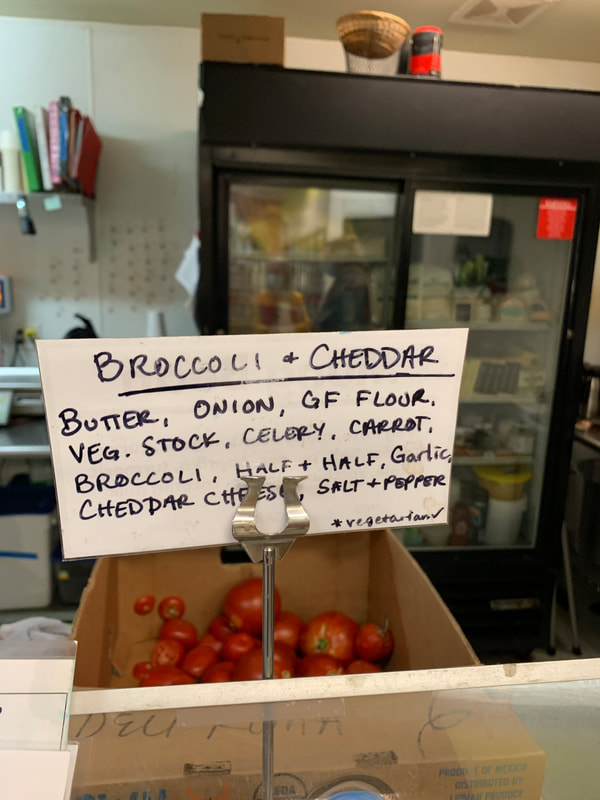 BROCCOLI + CHEDDAR
BUTTER, ONION, GF FLOUR,
VEG. STOCK, CELERY, CARROT,
BROCCOLI, HALF + HALF, Garlic,
CHEDDAR CHEESE, SALT + PEPPER
*vegetarian✓
DELI ROMA
PRODUCE OF MEXICO
DISTRIBUTED BY: